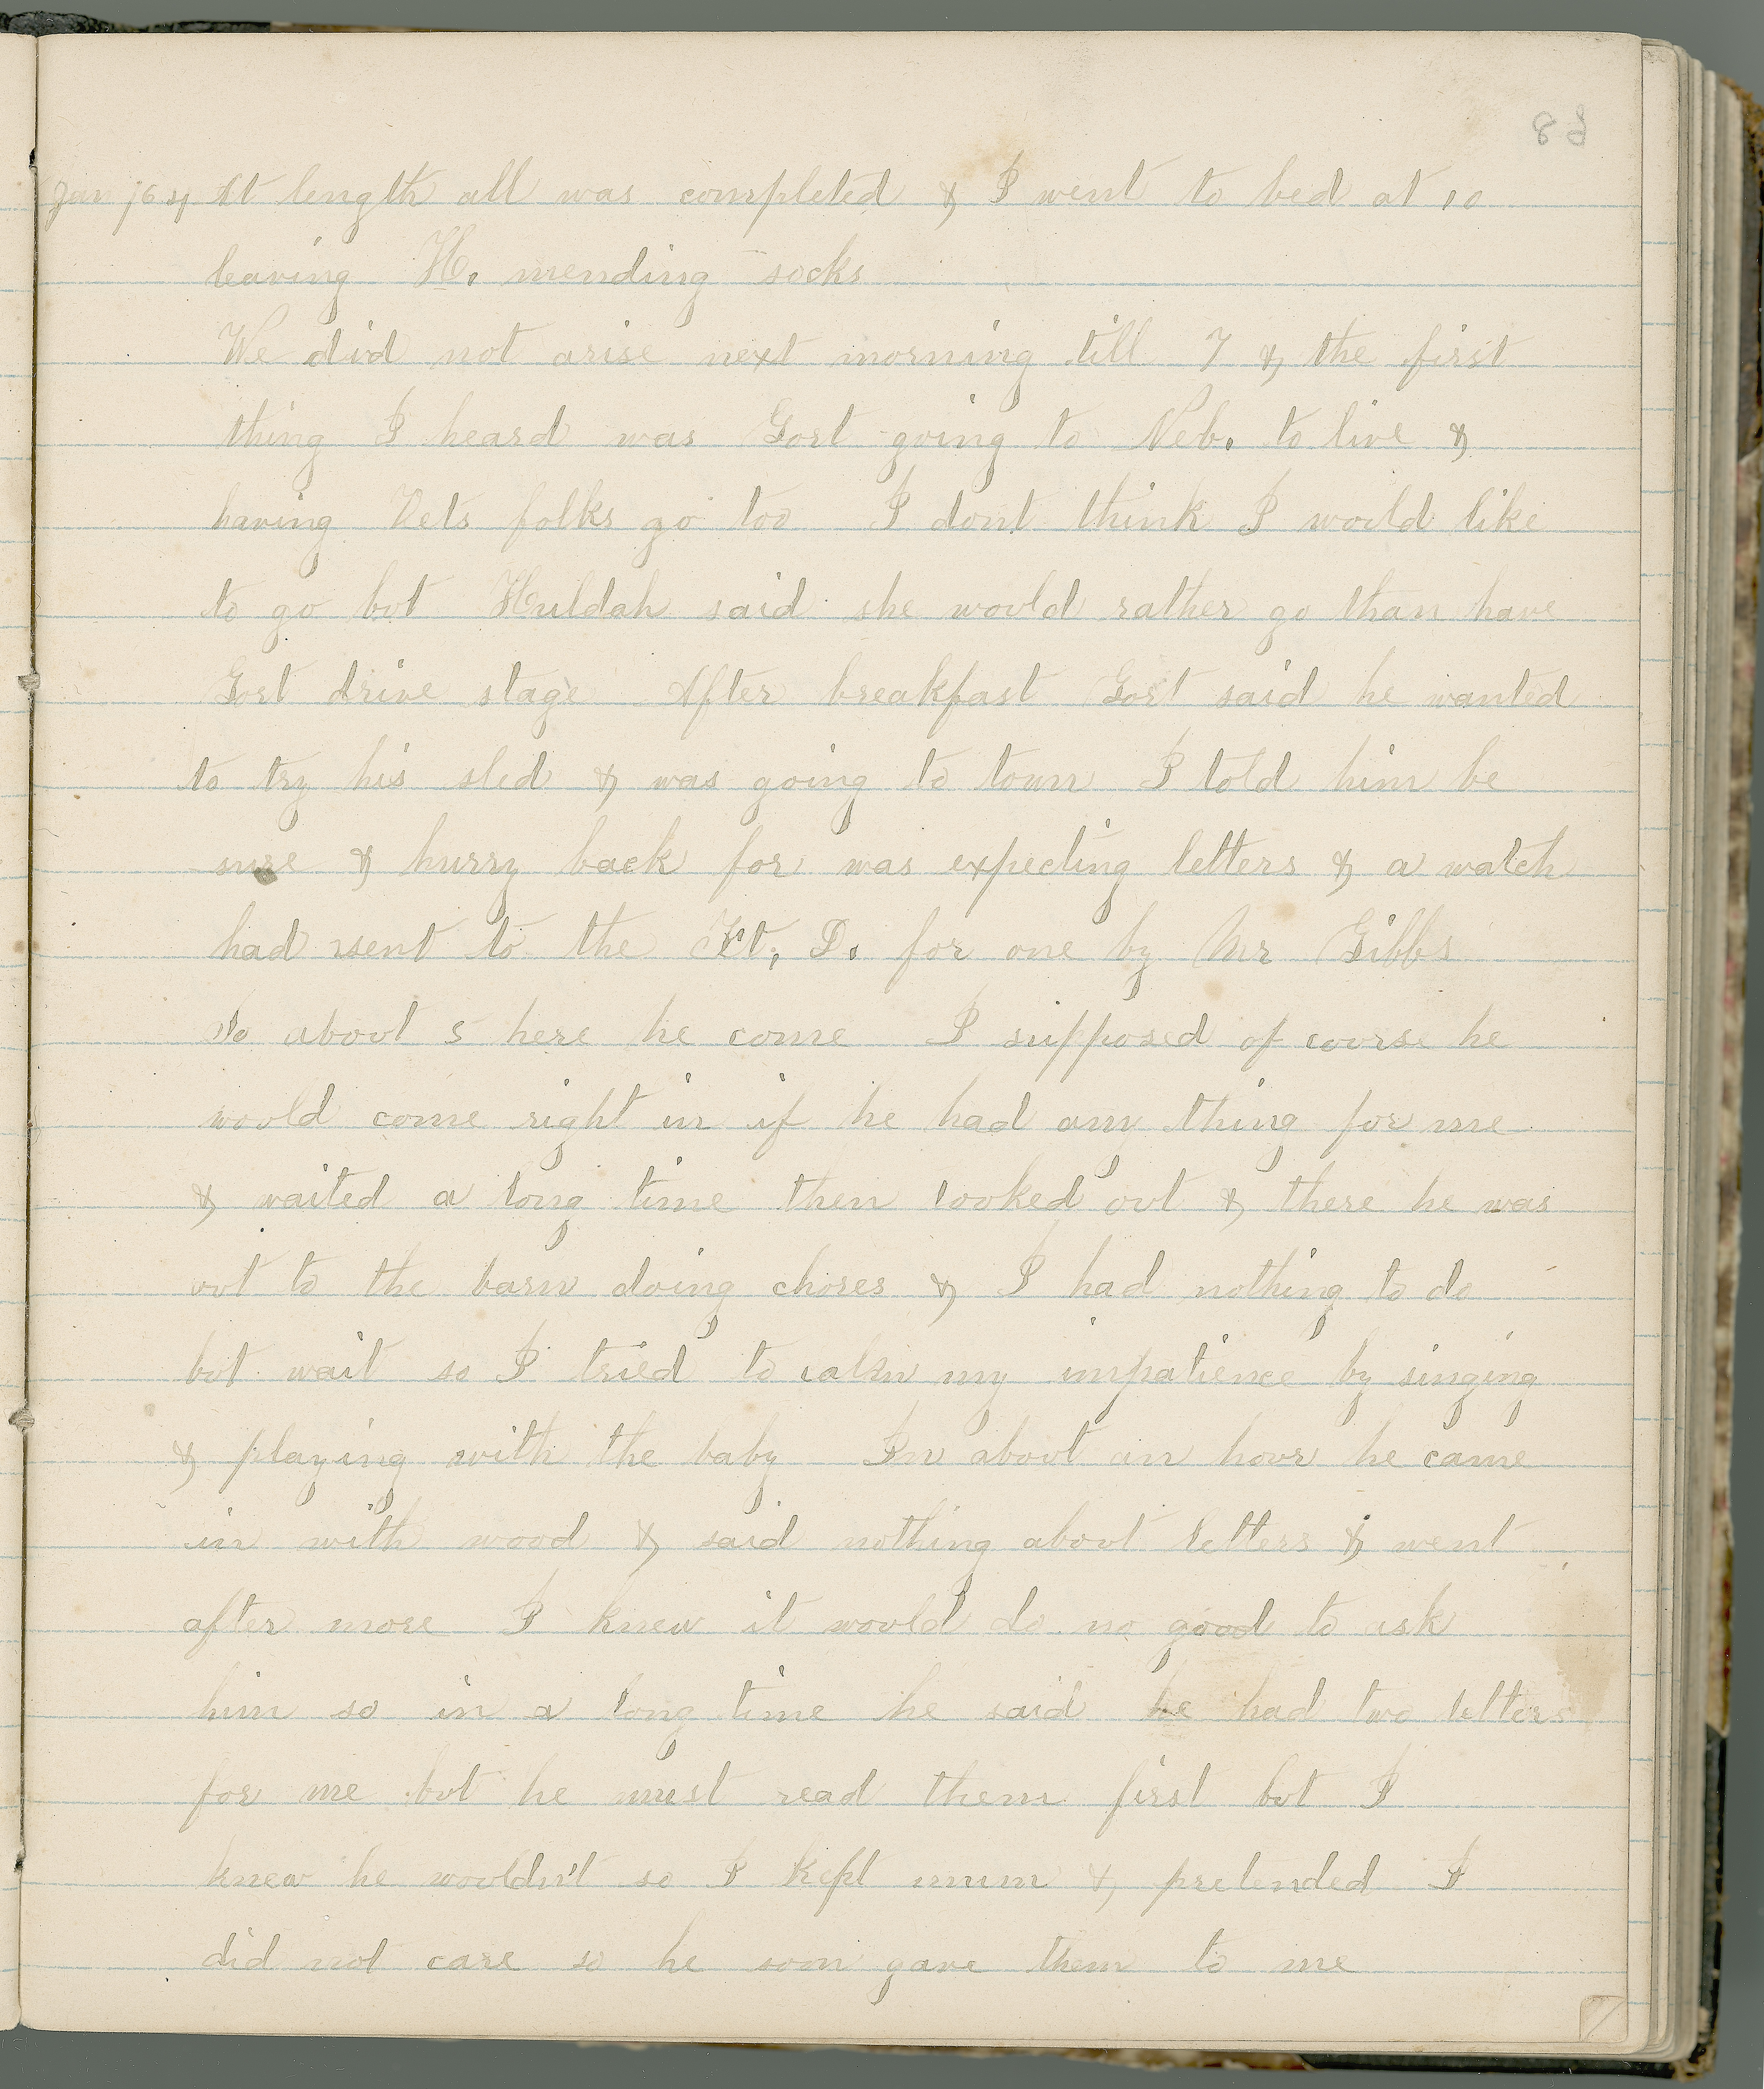 83
Jan 164 At length all was completed & I went to bed at 10
leaving H. mending socks
We did not arise next morning till 7 & the first
thing I heard was Gort going to Neb. to live &
having Dets folks go too I dont think I would like
to go but Huldah said she would rather go than have
Gort drive stage After breakfast Gort said he wanted
to try his sled & was going to town I told him be
sure & hurry back for was expecting letters & a watch
had sent to the Ft. D. for one by Mr Gibbs
So about 5 here he come I supposed of course he
would come right in if he had any thing for me
& waited a long time then looked out & there he was
out to the barn doing chores & I had nothing to do
but wait so I tried to calm my impatience by singing
& playing with the baby In about an hour he came
in with wood & said nothing about letters & went
after more I knew it would do no good to ask
him so in a long time he said he had two letters
for me but he must read them first but I
knew he wouldn't so I kept mum & pretended I
did not care so he soon gave them to me